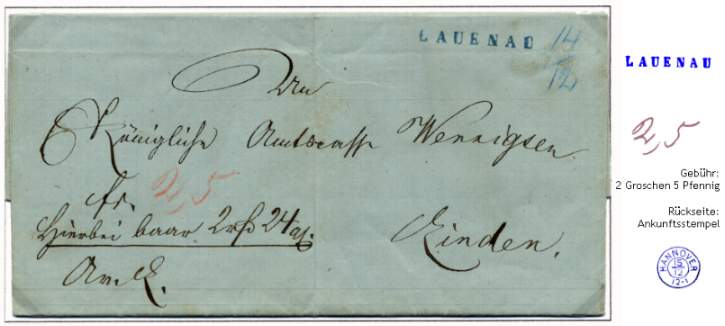 LAUENAU 14/12
An
Königliche Amtscasse Wennigsen
fr. 2,5
Hierbei baar 2 rß 24
Linden.
LAUENAU
2,5
Gebühr:
2 Groschen 5 Pfennig
Rückseite:
Ankunftsstempel
HANNOVER
15
12
12-1